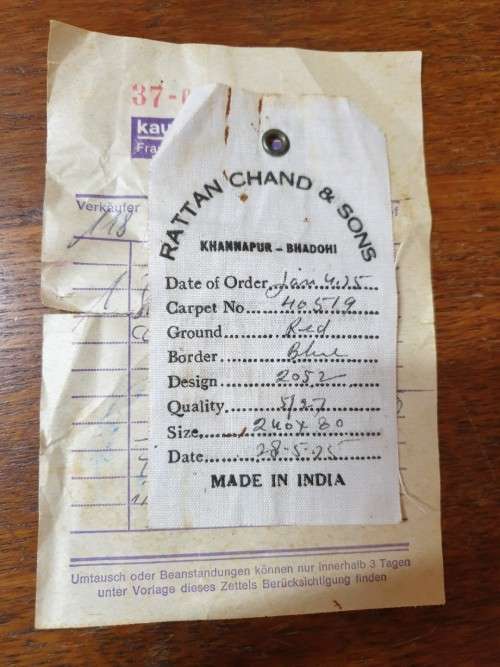 37-
kau
Fra
Verkäufer
118
RATTAN CHAND & SONS
KHANNAPUR - BHADOHI
Date of Order
Carpet No. 40519
Ground Red
Border Blue
Design 2052
Quality 5/27
Size 240 x 80
Date 28-5-25
MADE IN INDIA
Umtausch oder Beanstandungen können nur innerhalb 3 Tagen
unter Vorlage dieses Zettels Berücksichtigung finden